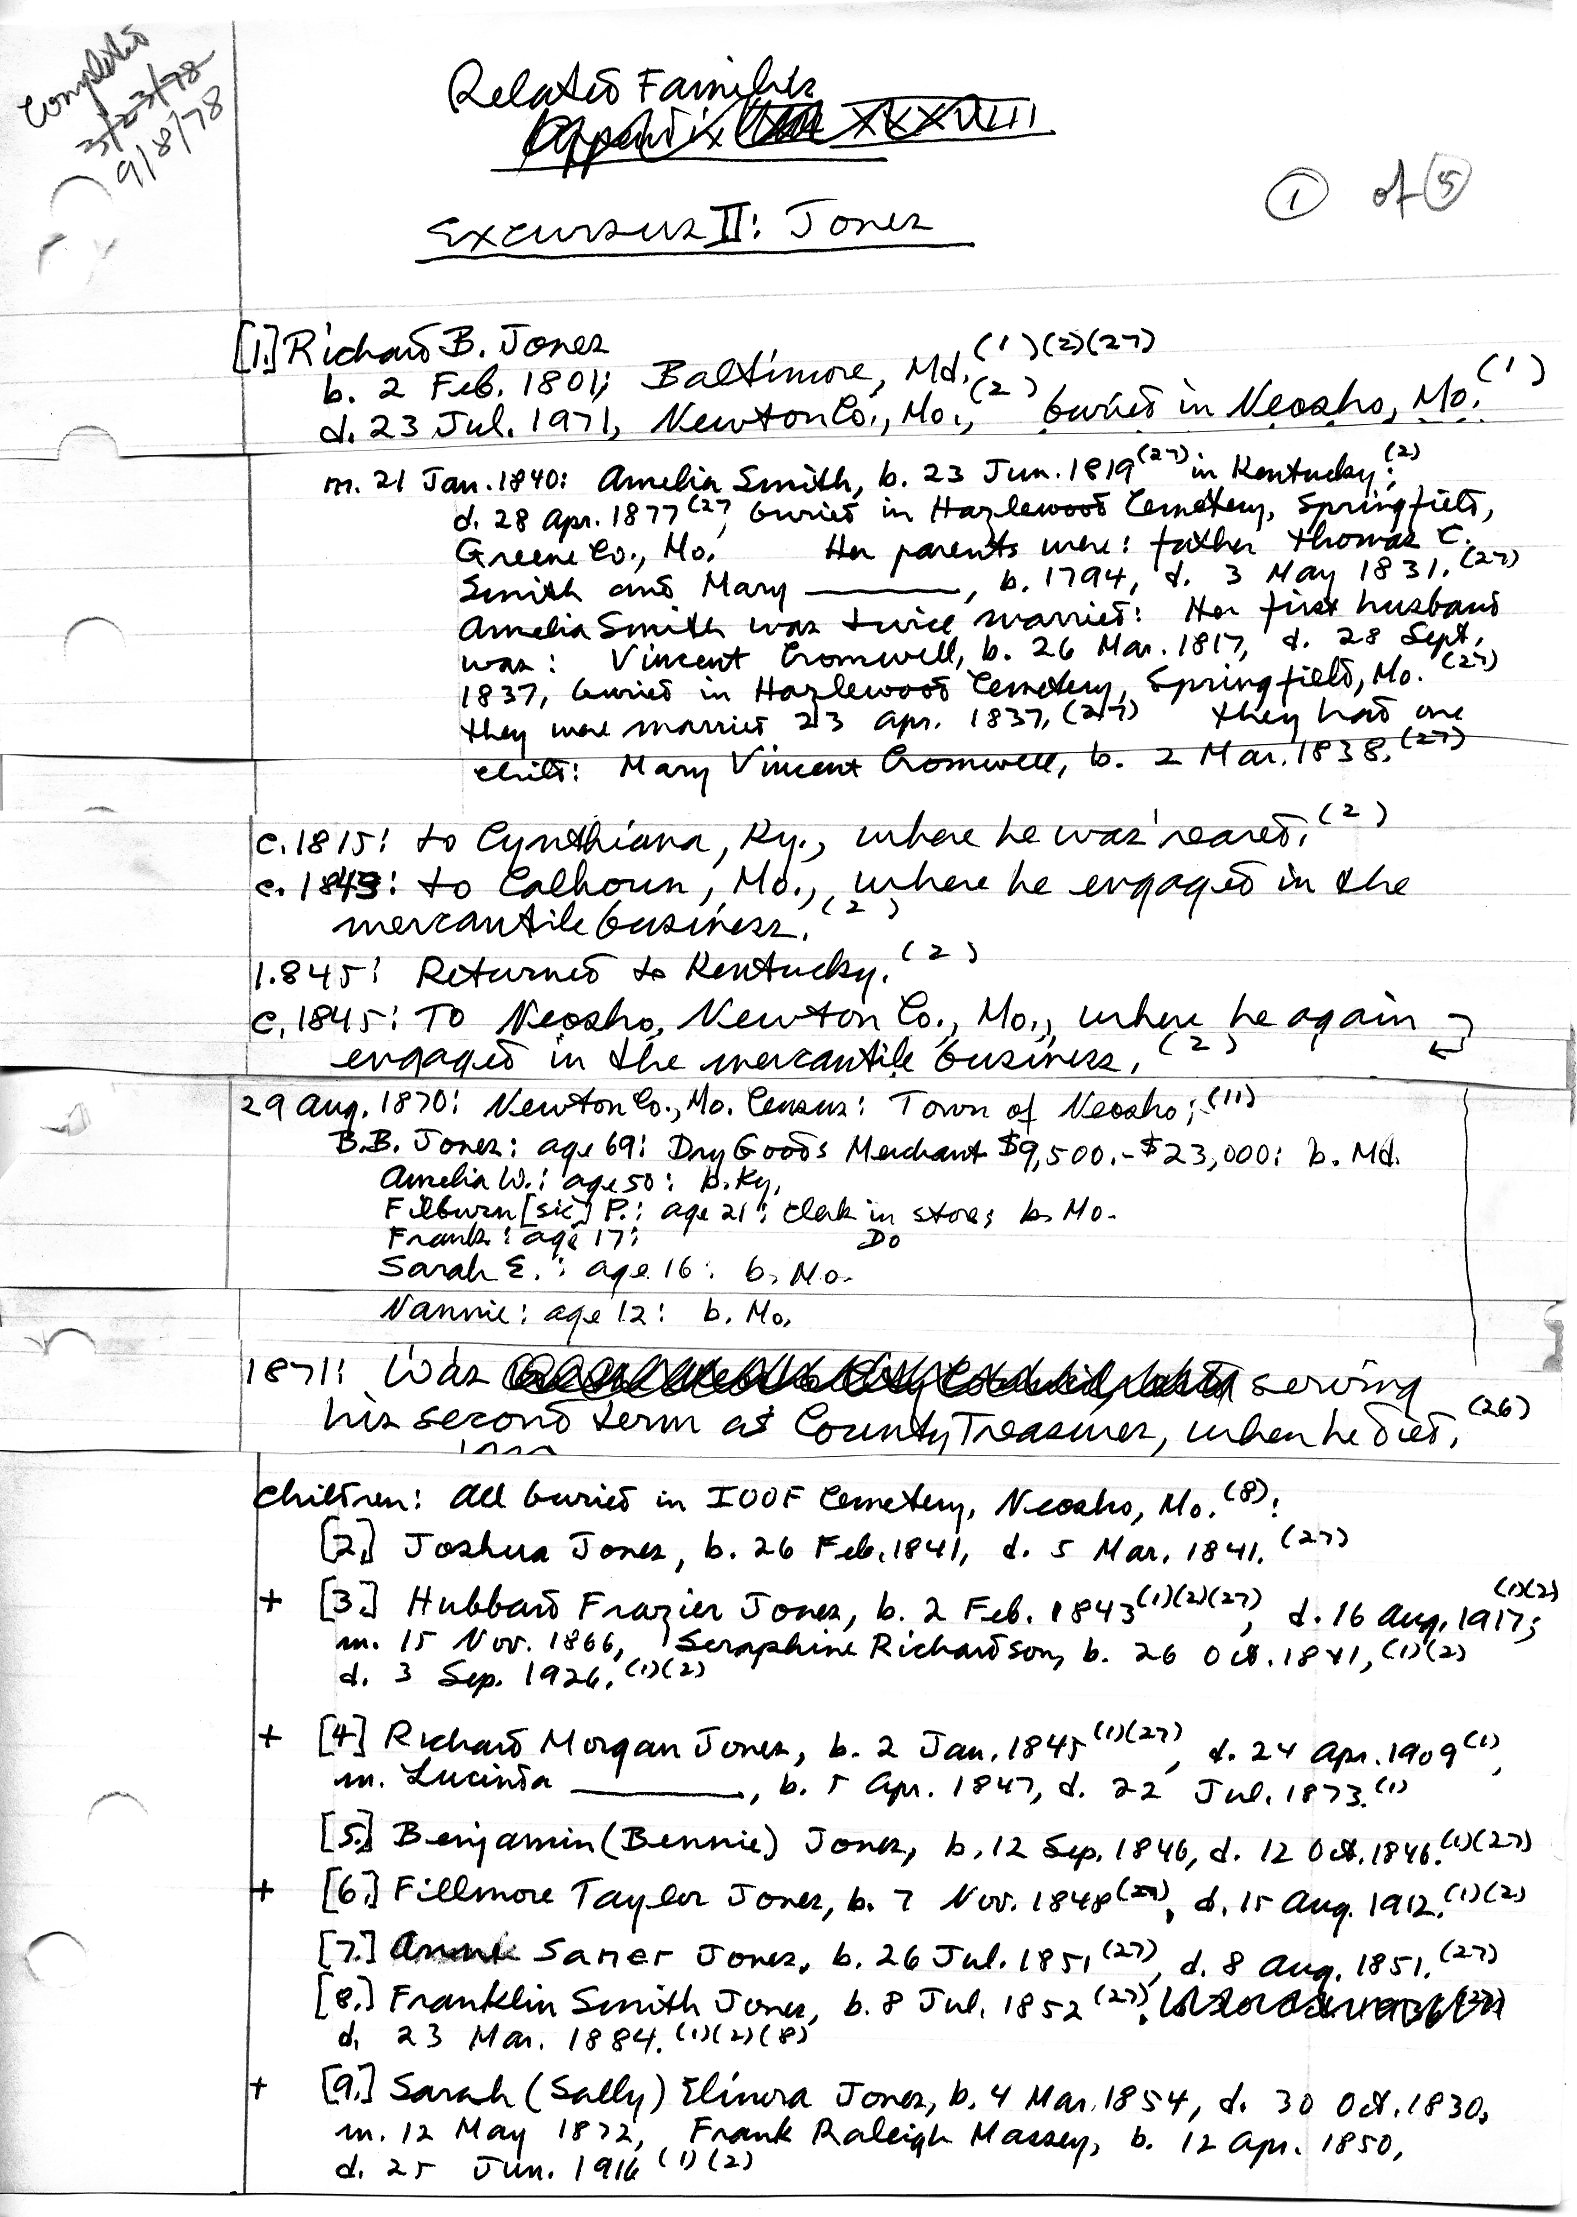 Completed
3/23/78
9/8/78
Related Families
Appendix XXXVIII
① of ⑤
Excursus II: Jones
[1.] Richard B. Jones
b. 2 Feb. 1801; Baltimore, Md. (1)(2)(27)
d. 23 Jul. 1971, Newton Co., Mo., (2) buried in Neosho, Mo. (1)
m. 21 Jan. 1840: Amelia Smith, b. 23 Jun. 1819 (27) in Kentucky; (2)
d. 28 Apr. 1877 (27, buried in Hazlewood Cemetery, Springfield,
Greene Co., Mo. Her parents were: father Thomas C.
Smith and Mary ______, b. 1794, d. 3 May 1831. (27)
Amelia Smith was twice married: Her first husband
was: Vincent Cromwell, b. 26 Mar. 1817, d. 28 Sept.
1837, buried in Hazlewood Cemetery, Springfield, Mo. (27)
They were married 23 Apr. 1837. (27) They had one
child: Mary Vincent Cromwell, b. 2 Mar. 1838. (27)
c. 1815: to Cynthiana, Ky., where he was reared. (2)
c. 1843: to Calhoun, Mo., where he engaged in the
mercantile business. (2)
1845: Returned to Kentucky. (2)
c. 1845: To Neosho, Newton Co., Mo., where he again
engaged in the mercantile business. (2)
29 Aug. 1870: Newton Co., Mo. Census: Town of Neosho; (11)
B.B. Jones: age 69: Dry Goods Merchant $9,500.-$23,000: b. Md.
Amelia W.: age 50: b. Ky.
Filburn [sic] P.: age 21: Clerk in store; b. Mo.
Frank: age 17: Do
Sarah E.: age 16: b. Mo.
Nannie: age 12: b. Mo.
1871: Was serving
his second term as County Treasurer, when he died. (26)
Children: All buried in IOOF Cemetery, Neosho, Mo. (8):
[2.] Joshua Jones, b. 26 Feb. 1841, d. 5 Mar. 1841. (27)
+ [3.] Hubbard Frazier Jones, b. 2 Feb. 1843 (1)(2)(27), d. 16 Aug. 1917; (1)(2)
m. 15 Nov. 1866, Seraphine Richardson, b. 26 Oct. 1841, (1)(2)
d. 3 Sep. 1926. (1)(2)
+ [4] Richard Morgan Jones, b. 2 Jan. 1845 (1)(27), d. 24 Apr. 1909 (1),
m. Lucinda ______, b. 5 Apr. 1847, d. 22 Jul. 1873. (1)
[5.] Benjamin (Bennie) Jones, b. 12 Sep. 1846, d. 12 Oct. 1846. (1)(27)
+ [6.] Fillmore Taylor Jones, b. 7 Nov. 1848 (27), d. 15 Aug. 1912. (1)(2)
[7.] Jones, b. 26 Jul. 1851 (27), d. 8 Aug. 1851. (27)
[8.] Franklin Smith Jones, b. 8 Jul. 1852 (27),
d. 23 Mar. 1884. (1)(2)(8)
+ [9.] Sarah (Sally) Elinora Jones, b. 4 Mar. 1854, d. 30 Oct. 1830,
m. 12 May 1872, Frank Raleigh Massey, b. 12 Apr. 1850,
d. 25 Jun. 1916 (1)(2)